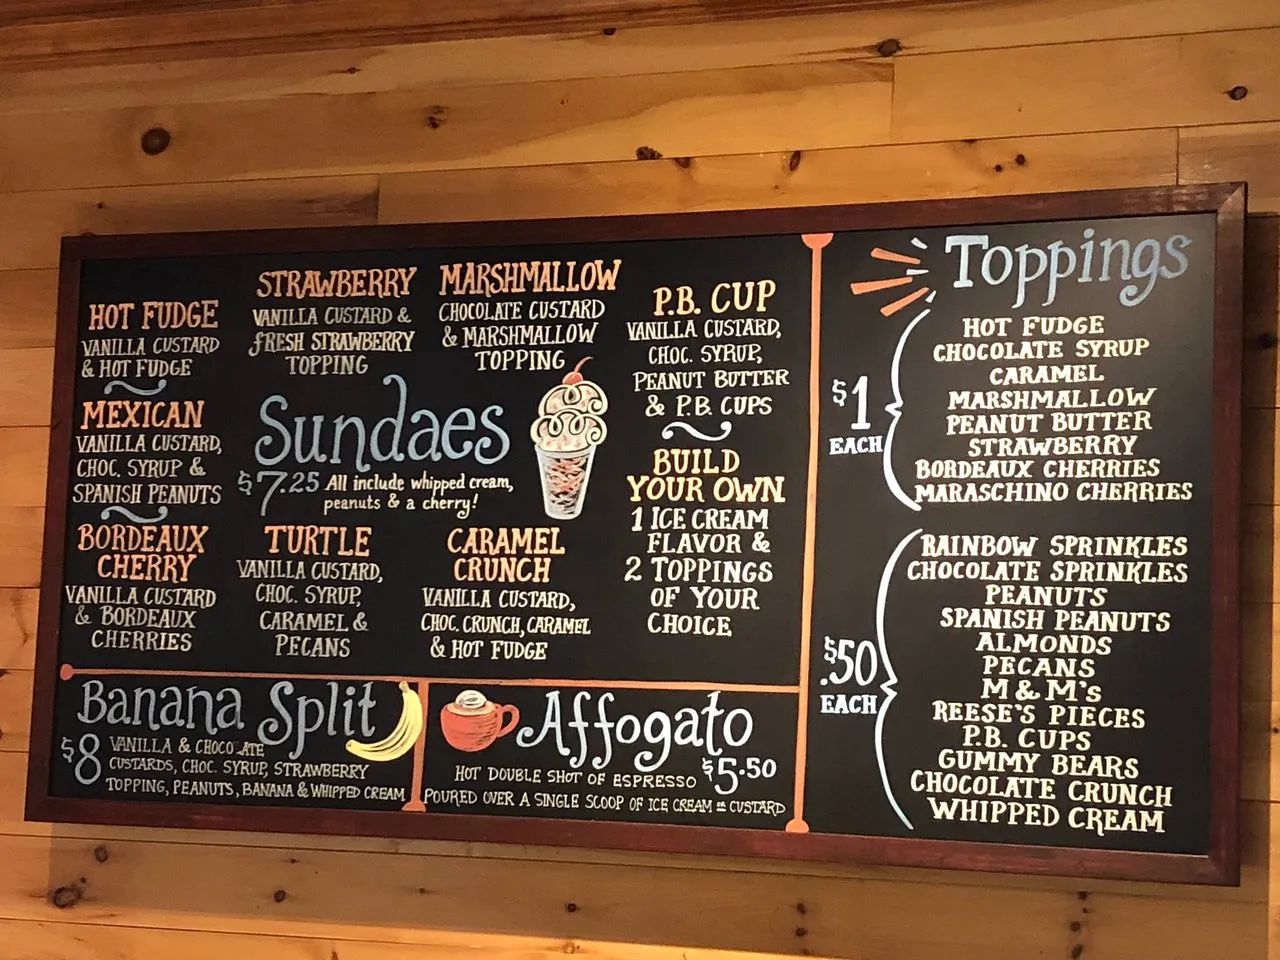 HOT FUDGE
VANILLA CUSTARD
& HOT FUDGE
STRAWBERRY
VANILLA CUSTARD &
FRESH STRAWBERRY
TOPPING
MARSHMALLOW
CHOCOLATE CUSTARD
& MARSHMALLOW
TOPPING
P.B. CUP
VANILLA CUSTARD,
CHOC. SYRUP,
PEANUT BUTTER
& P.B. CUPS
MEXICAN
VANILLA CUSTARD,
CHOC. SYRUP &
SPANISH PEANUTS
Sundaes
$7.25 All include whipped cream,
peanuts & a cherry!
BUILD
YOUR OWN
1 ICE CREAM
FLAVOR &
2 TOPPINGS
OF YOUR
CHOICE
BORDEAUX
CHERRY
VANILLA CUSTARD
& BORDEAUX
CHERRIES
TURTLE
VANILLA CUSTARD,
CHOC. SYRUP,
CARAMEL &
PECANS
CARAMEL
CRUNCH
VANILLA CUSTARD,
CHOC. CRUNCH, CARAMEL
& HOT FUDGE
Banana Split
$8 VANILLA & CHOCO ATE
CUSTARDS, CHOC. SYRUP, STRAWBERRY
TOPPING, PEANUTS, BANANA & WHIPPED CREAM
Affogato
HOT DOUBLE SHOT OF ESPRESSO $5.50
POURED OVER A SINGLE SCOOP OF ICE CREAM OR CUSTARD
Toppings
$1
EACH
HOT FUDGE
CHOCOLATE SYRUP
CARAMEL
MARSHMALLOW
PEANUT BUTTER
STRAWBERRY
BORDEAUX CHERRIES
MARASCHINO CHERRIES
$.50
EACH
RAINBOW SPRINKLES
CHOCOLATE SPRINKLES
PEANUTS
SPANISH PEANUTS
ALMONDS
PECANS
M & M's
REESE'S PIECES
P.B. CUPS
GUMMY BEARS
CHOCOLATE CRUNCH
WHIPPED CREAM